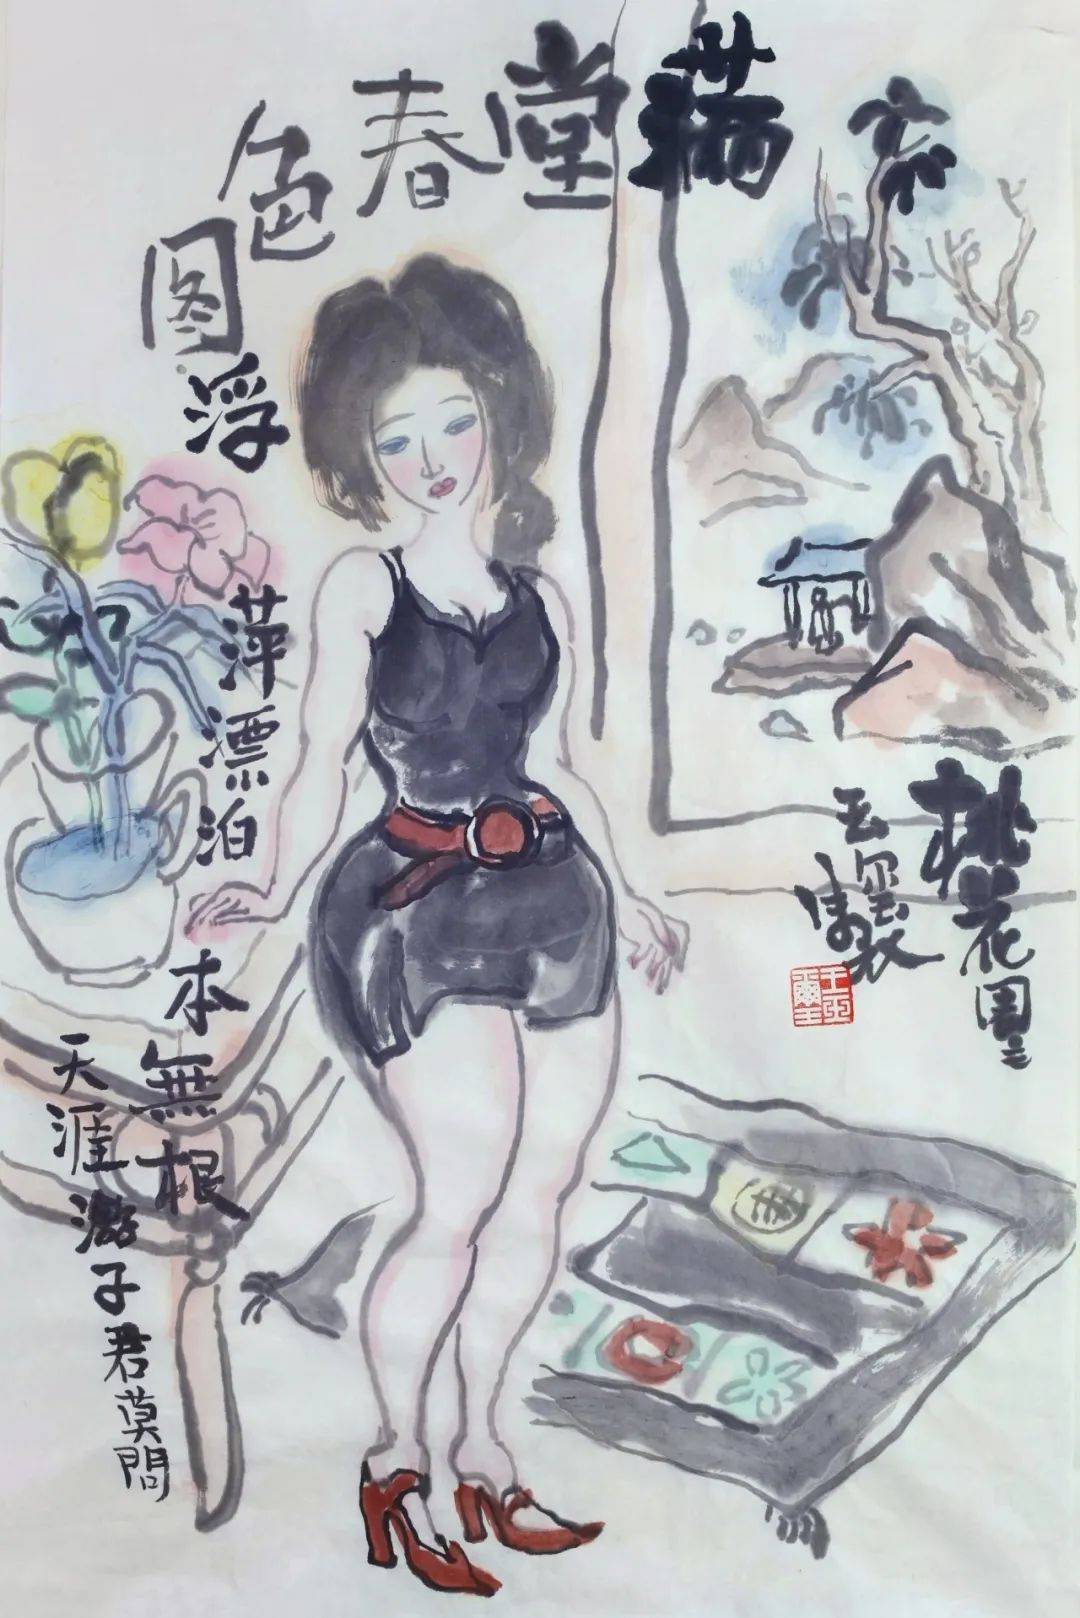 滿堂春色图
浮萍漂泊本無根
天涯游子君莫問
桃花園主